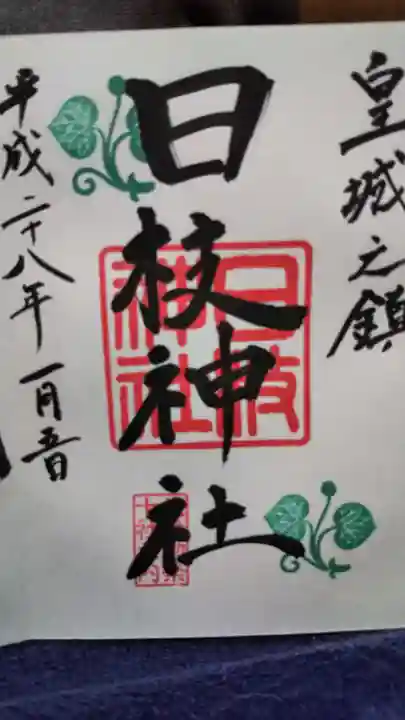 皇城之鎮
日枝神社
日枝神社
平成二十八年一月五日